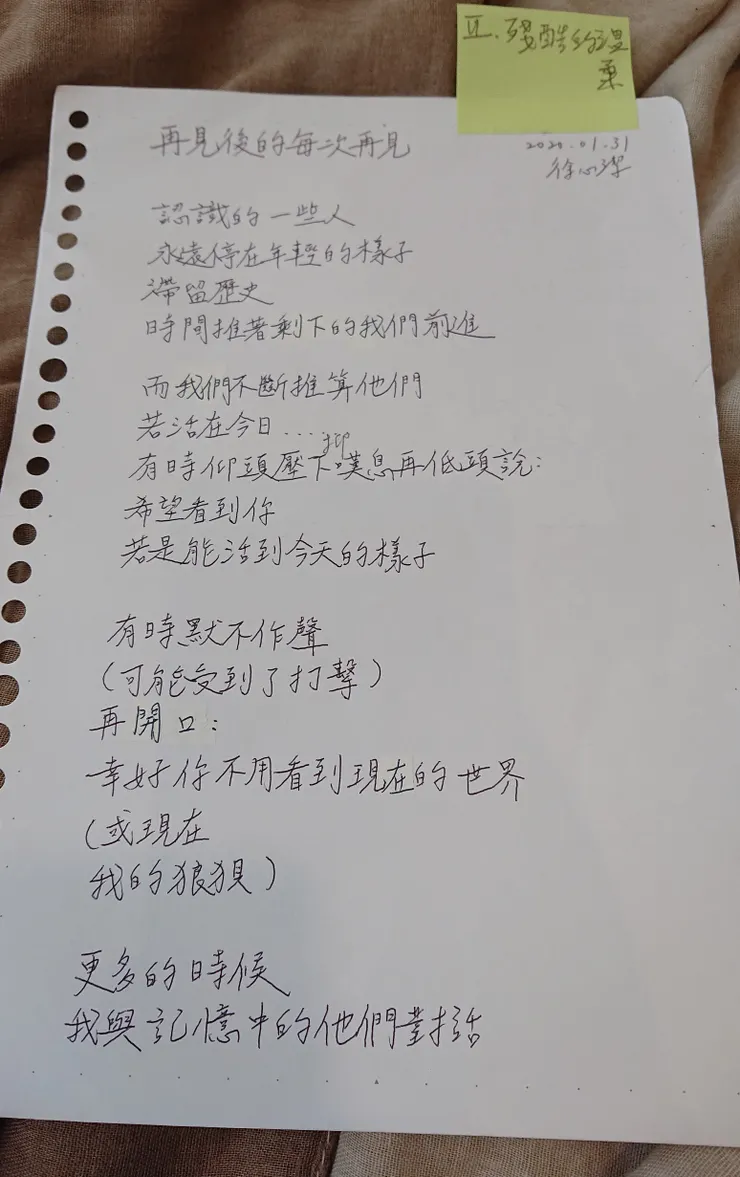 五.殘酷的溫
柔
再見後的每次再見
2020.01.31
徐心潔
認識的一些人
永遠停在年輕的樣子
滯留歷史
時間推著剩下的我們前進
而我們不斷推算他們
若活在今日...
抑
有時仰頭壓下嘆息再低頭說:
希望看到你
若是能活到今天的樣子
有時默不作聲
(可能受到了打擊)
再開口:
幸好你不用看到現在的世界
(或現在
我的狼狽)
更多的時候
我與記憶中的他們對話